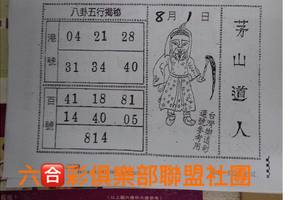 八卦五行揭秘
港號
04 21 28
31 34 40
百號
41 18 81
14 40 05
814
8月1日
茅山道人
台灣樹德創
選號參考用
六合彩俱樂部聯盟社團